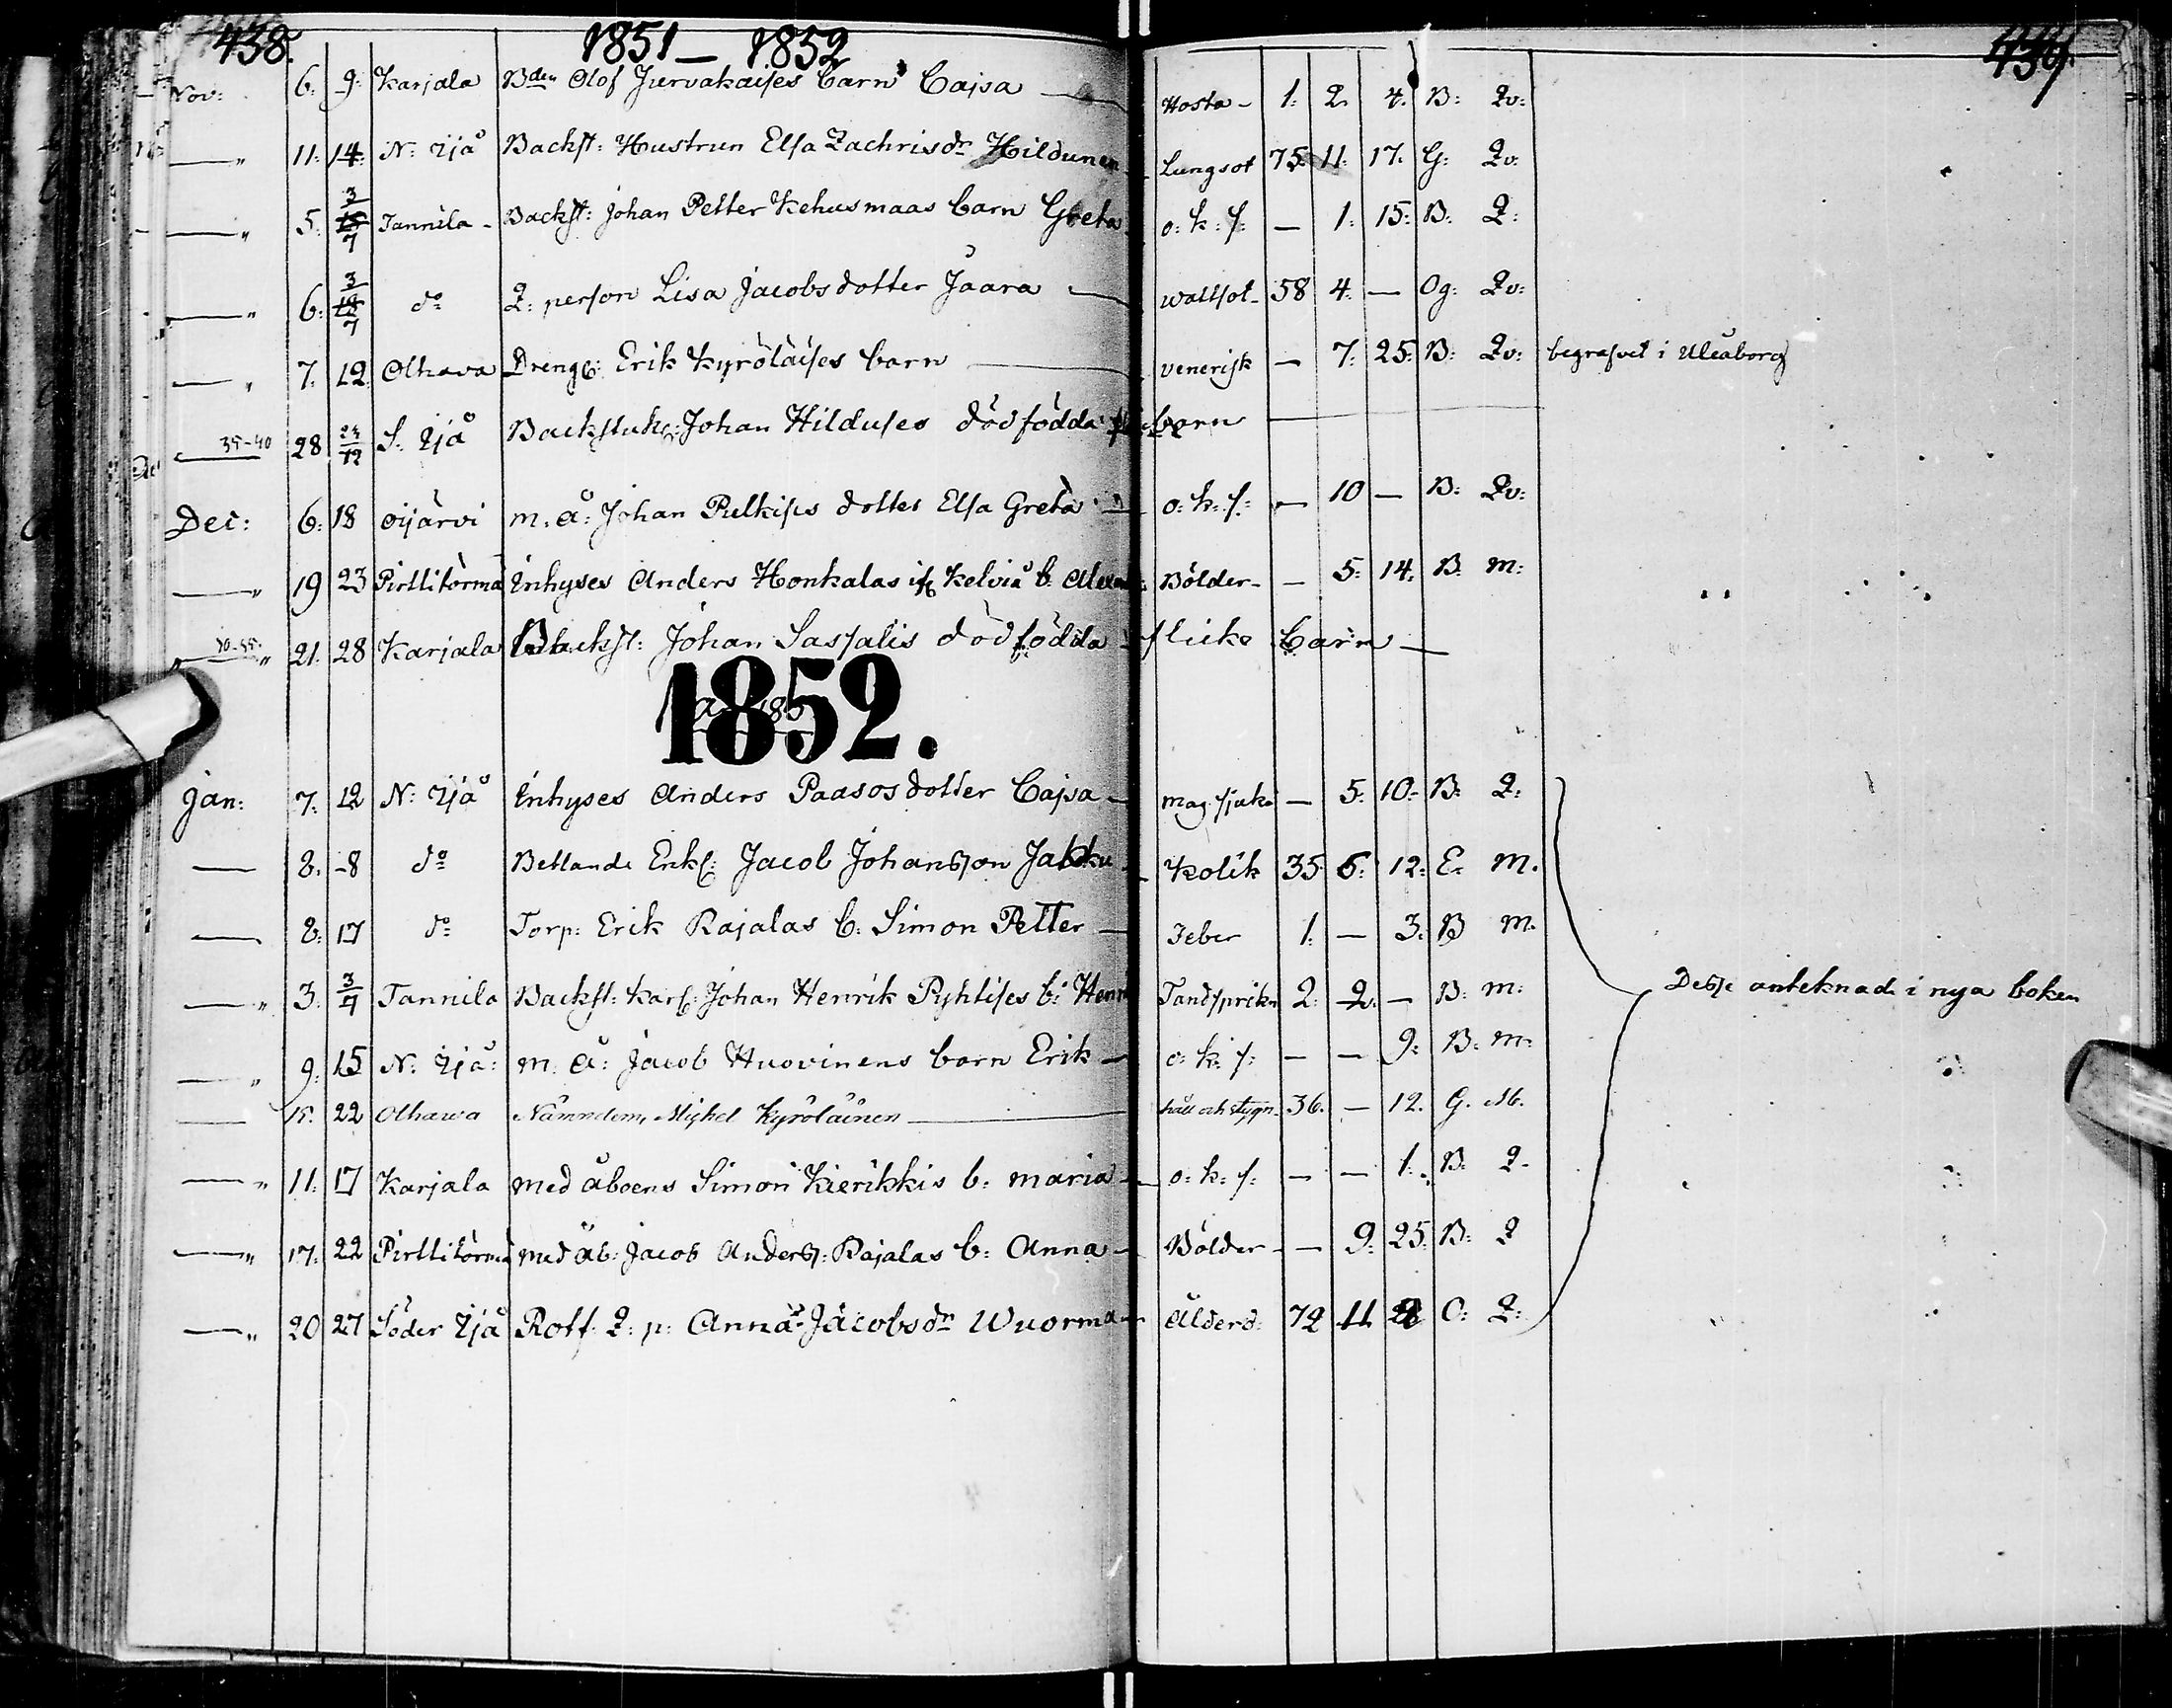 438. 1851 — 1852 439.
Nov: 6. 9. Karjala Bden Olof Jurvakaises barn Cajsa — Hosta - 1: 2. 4. B: Qv:
—" 11: 14: N: Ijå Backst: Hustrun Elsa Zachrisdr Hildunen Lungsot 75. 11. 17. G: Qv.
—" 5. 3/7 Tannila - Backst: Johan Petter Kehusmaas barn Greta o: k: s: — 1: 15: B: Q:
—" 6: 3/7 do Q: person Lisa Jacobsdotter Jaara — wattsot - 58 4. — Og: Qv:
—" 7. 12 Olhava Drengs: Erik Kyröläises barn — venerisk — 7: 25: B: Qv: begrafvet i Uleåborg
35-40 28 24/12 S: Ijå Backstuks: Johan Hilduses dödfödda barn —
Dec: 6: 18 Oijärvi m. å: Johan Pulkises dotter Elsa Greta — o. k. s: — 10 — B: Qv:
—" 19 23 Pirttitörmä Inhyses Anders Honkalas Kelviå b: Bölder - — 5: 14. B. m:
40-45. —" 21: 28 Karjala Backst: Johan Sassalis dödfödda flicke barn —
1852.
Jan: 7. 12 N: Ijå Inhyses Anders Paasos dotter Cajsa — mag sjuka — 5: 10: B: Q:
— 8. -8 do Betlande Enkl: Jacob Johansson Jakku Kolik 35 6: 12: E. M.
— 8: 17 do Torp: Erik Rajalas b: Simon Petter — Feber 1: — 3: B m.
—" 3. 3/7 Tannila Backst: karl: Johan Henrik Pyhtises b: Henr Tandsprikn 2: 2. — B: m: Desse anteknade i nya boken
—" 9: 15 N: Ijå: m: å: Jacob Huovinens barn Erik — o: k: s: — — 9: B: m:
— 15. 22 Olhawa Nämndem, Mickel Kyröläinen — håll och stygn. 36. — 12. G. M.
—" 11: 17 Karjala med åboens Simon Kierikkis b: maria — o: k: s: — — 1: B: Q.
—" 17: 22 Pirttitörmä med åb: Jacob Anders: Rajalas b: Anna — Bölder - — 9: 25: B: Q
—" 20 27 Söder Ijå Rotf: Q: p: Anna Jacobsdr Wuorma — Ålderd: 72 11 O: Q: